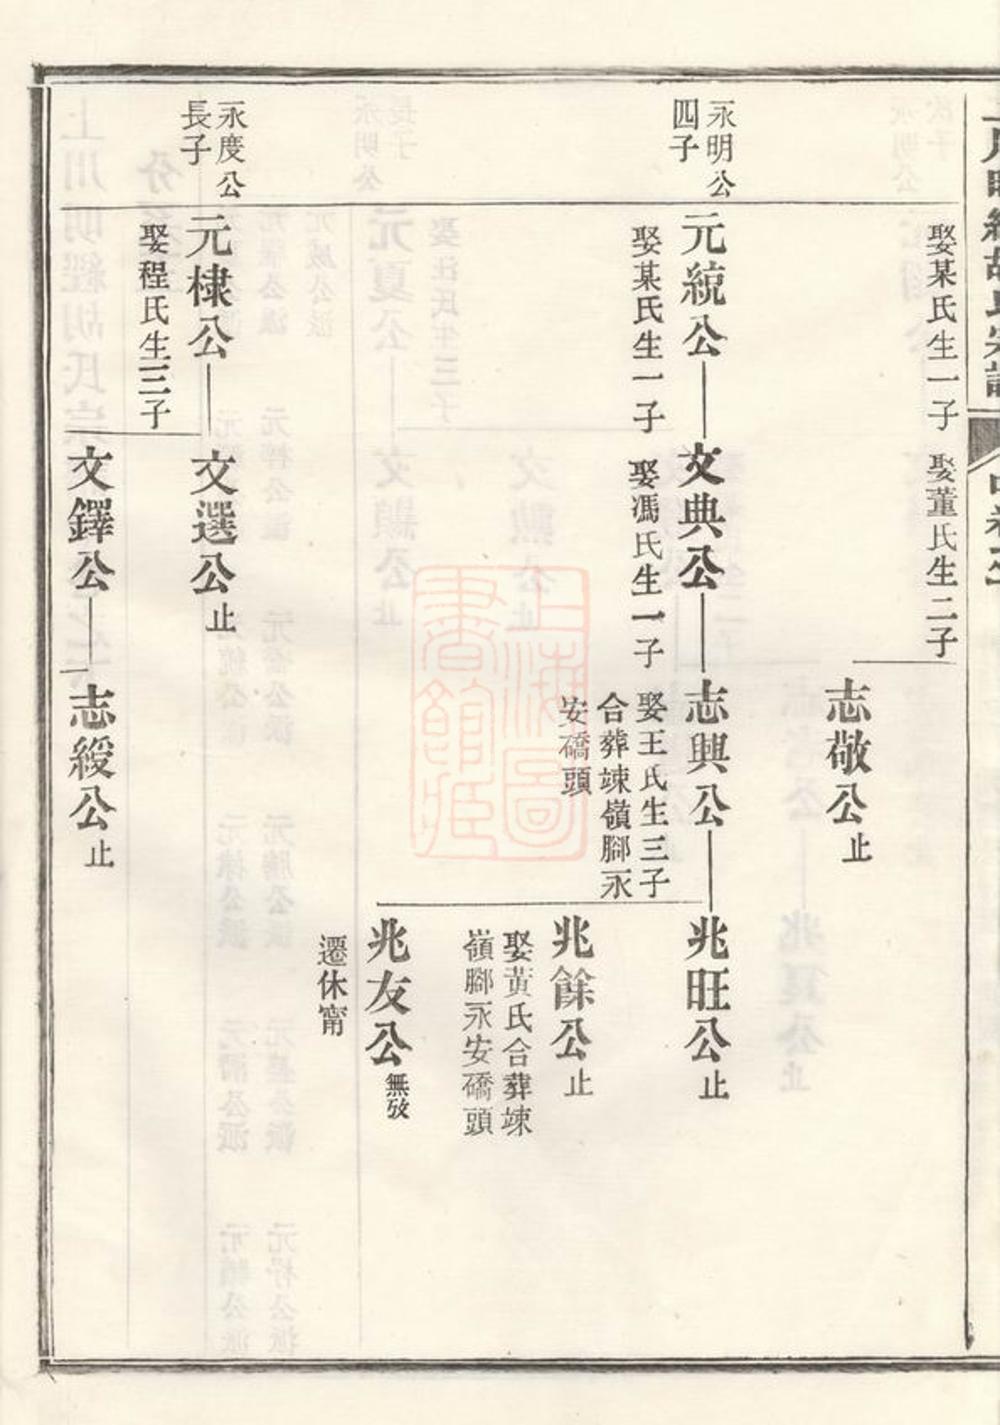 上川明經胡氏宗譜
中卷之
娶某氏生一子
娶董氏生二子
志敬公止
永明公
四子
元統公
娶某氏生一子
文典公
娶馮氏生一子
志興公
娶王氏生三子
合葬竦嶺腳永
安礄頭
兆旺公止
兆餘公止
娶黃氏合葬竦
嶺腳永安礄頭
兆友公無攷
遷休甯
永度公
長子
元棣公
娶程氏生三子
文選公止
文鐸公
志綬公止
上海圖
書館藏